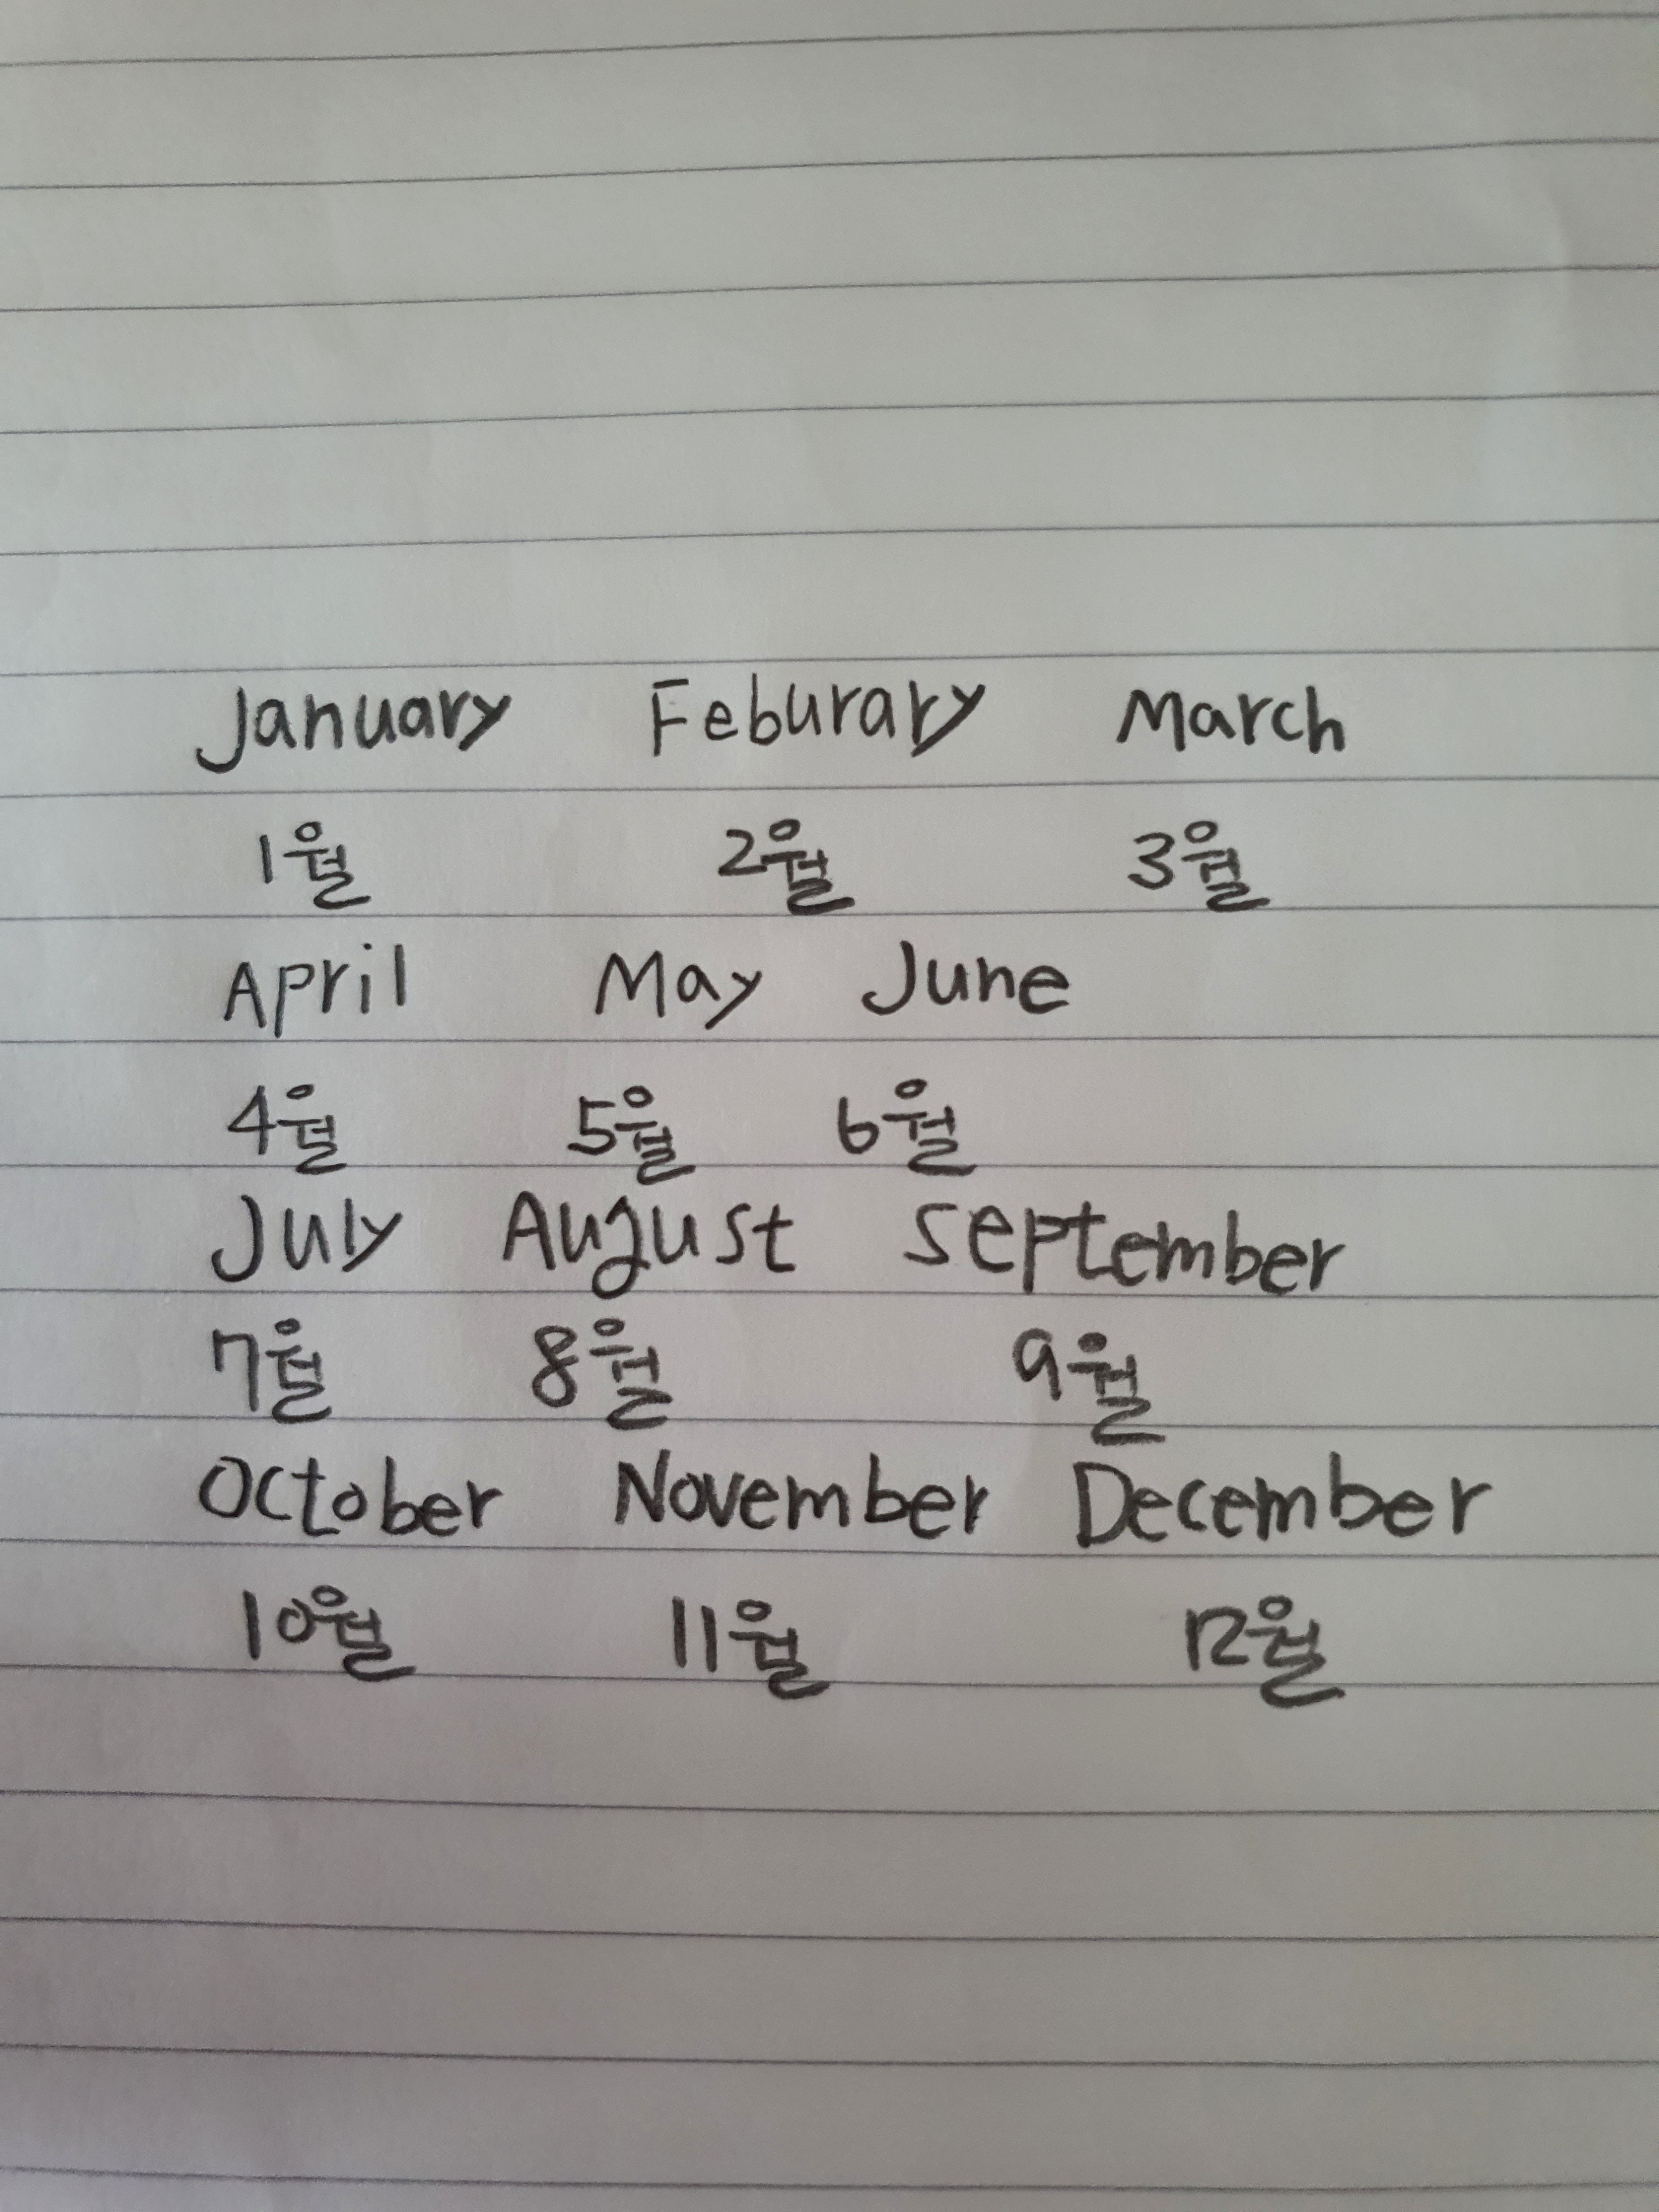 January Feburary March
1월 2월 3월
April May June
4월 5월 6월
July August September
7월 8월 9월
October November December
10월 11월 12월